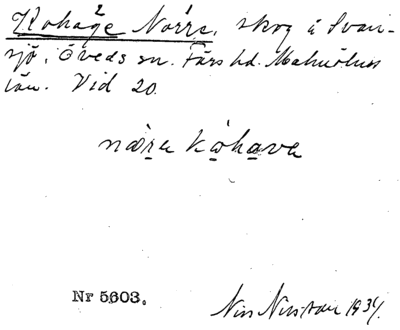 Kohage Norra, skog å Svan-
sjö, Öveds sn. Färs hd. Malmöhus
län. Vid 20.
næra kohava
Nr 5603.
Nils Nilsson 1934.